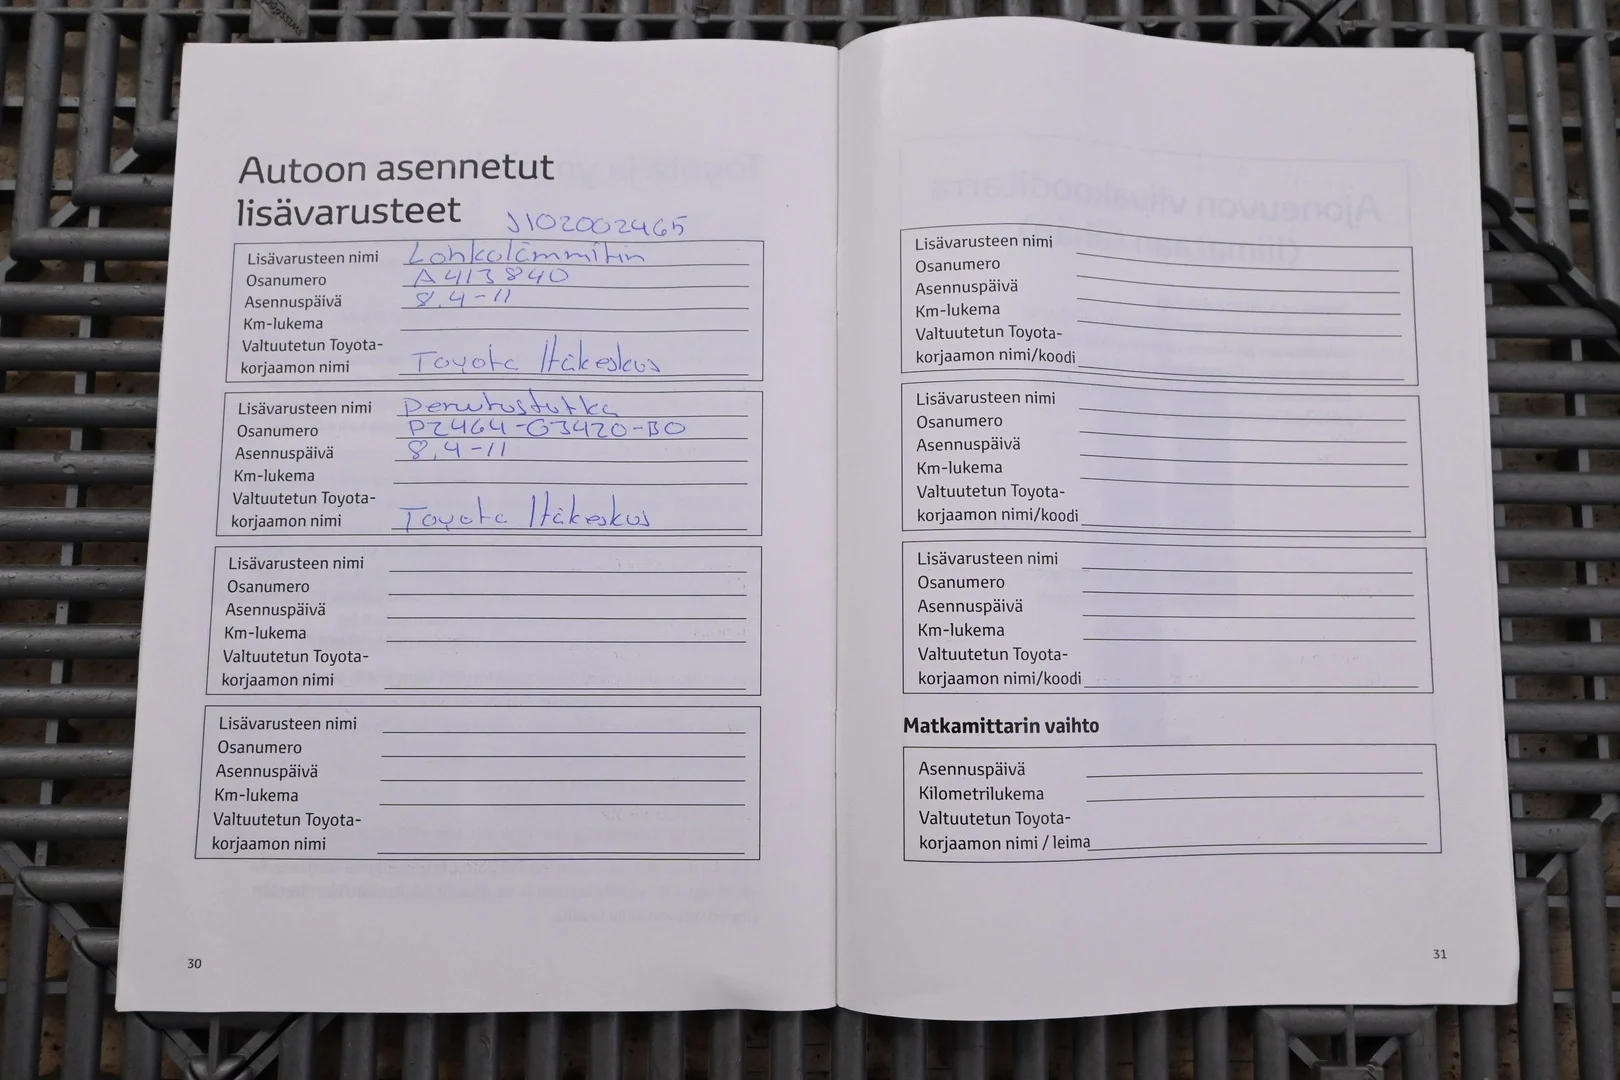 Autoon asennetut
lisävarusteet
J102002465
Lisävarusteen nimi Lohkolämmitin
Osanumero A413840
Asennuspäivä 8.4-11
Km-lukema
Valtuutetun Toyota-
korjaamon nimi Toyota Itäkeskus
Lisävarusteen nimi Peruutustutka
Osanumero PZ464-G3420-B0
Asennuspäivä 8.4-11
Km-lukema
Valtuutetun Toyota-
korjaamon nimi Toyota Itäkeskus
Lisävarusteen nimi
Osanumero
Asennuspäivä
Km-lukema
Valtuutetun Toyota-
korjaamon nimi
Lisävarusteen nimi
Osanumero
Asennuspäivä
Km-lukema
Valtuutetun Toyota-
korjaamon nimi
30
Lisävarusteen nimi
Osanumero
Asennuspäivä
Km-lukema
Valtuutetun Toyota-
korjaamon nimi/koodi
Lisävarusteen nimi
Osanumero
Asennuspäivä
Km-lukema
Valtuutetun Toyota-
korjaamon nimi/koodi
Lisävarusteen nimi
Osanumero
Asennuspäivä
Km-lukema
Valtuutetun Toyota-
korjaamon nimi/koodi
Matkamittarin vaihto
Asennuspäivä
Kilometrilukema
Valtuutetun Toyota-
korjaamon nimi / leima
31